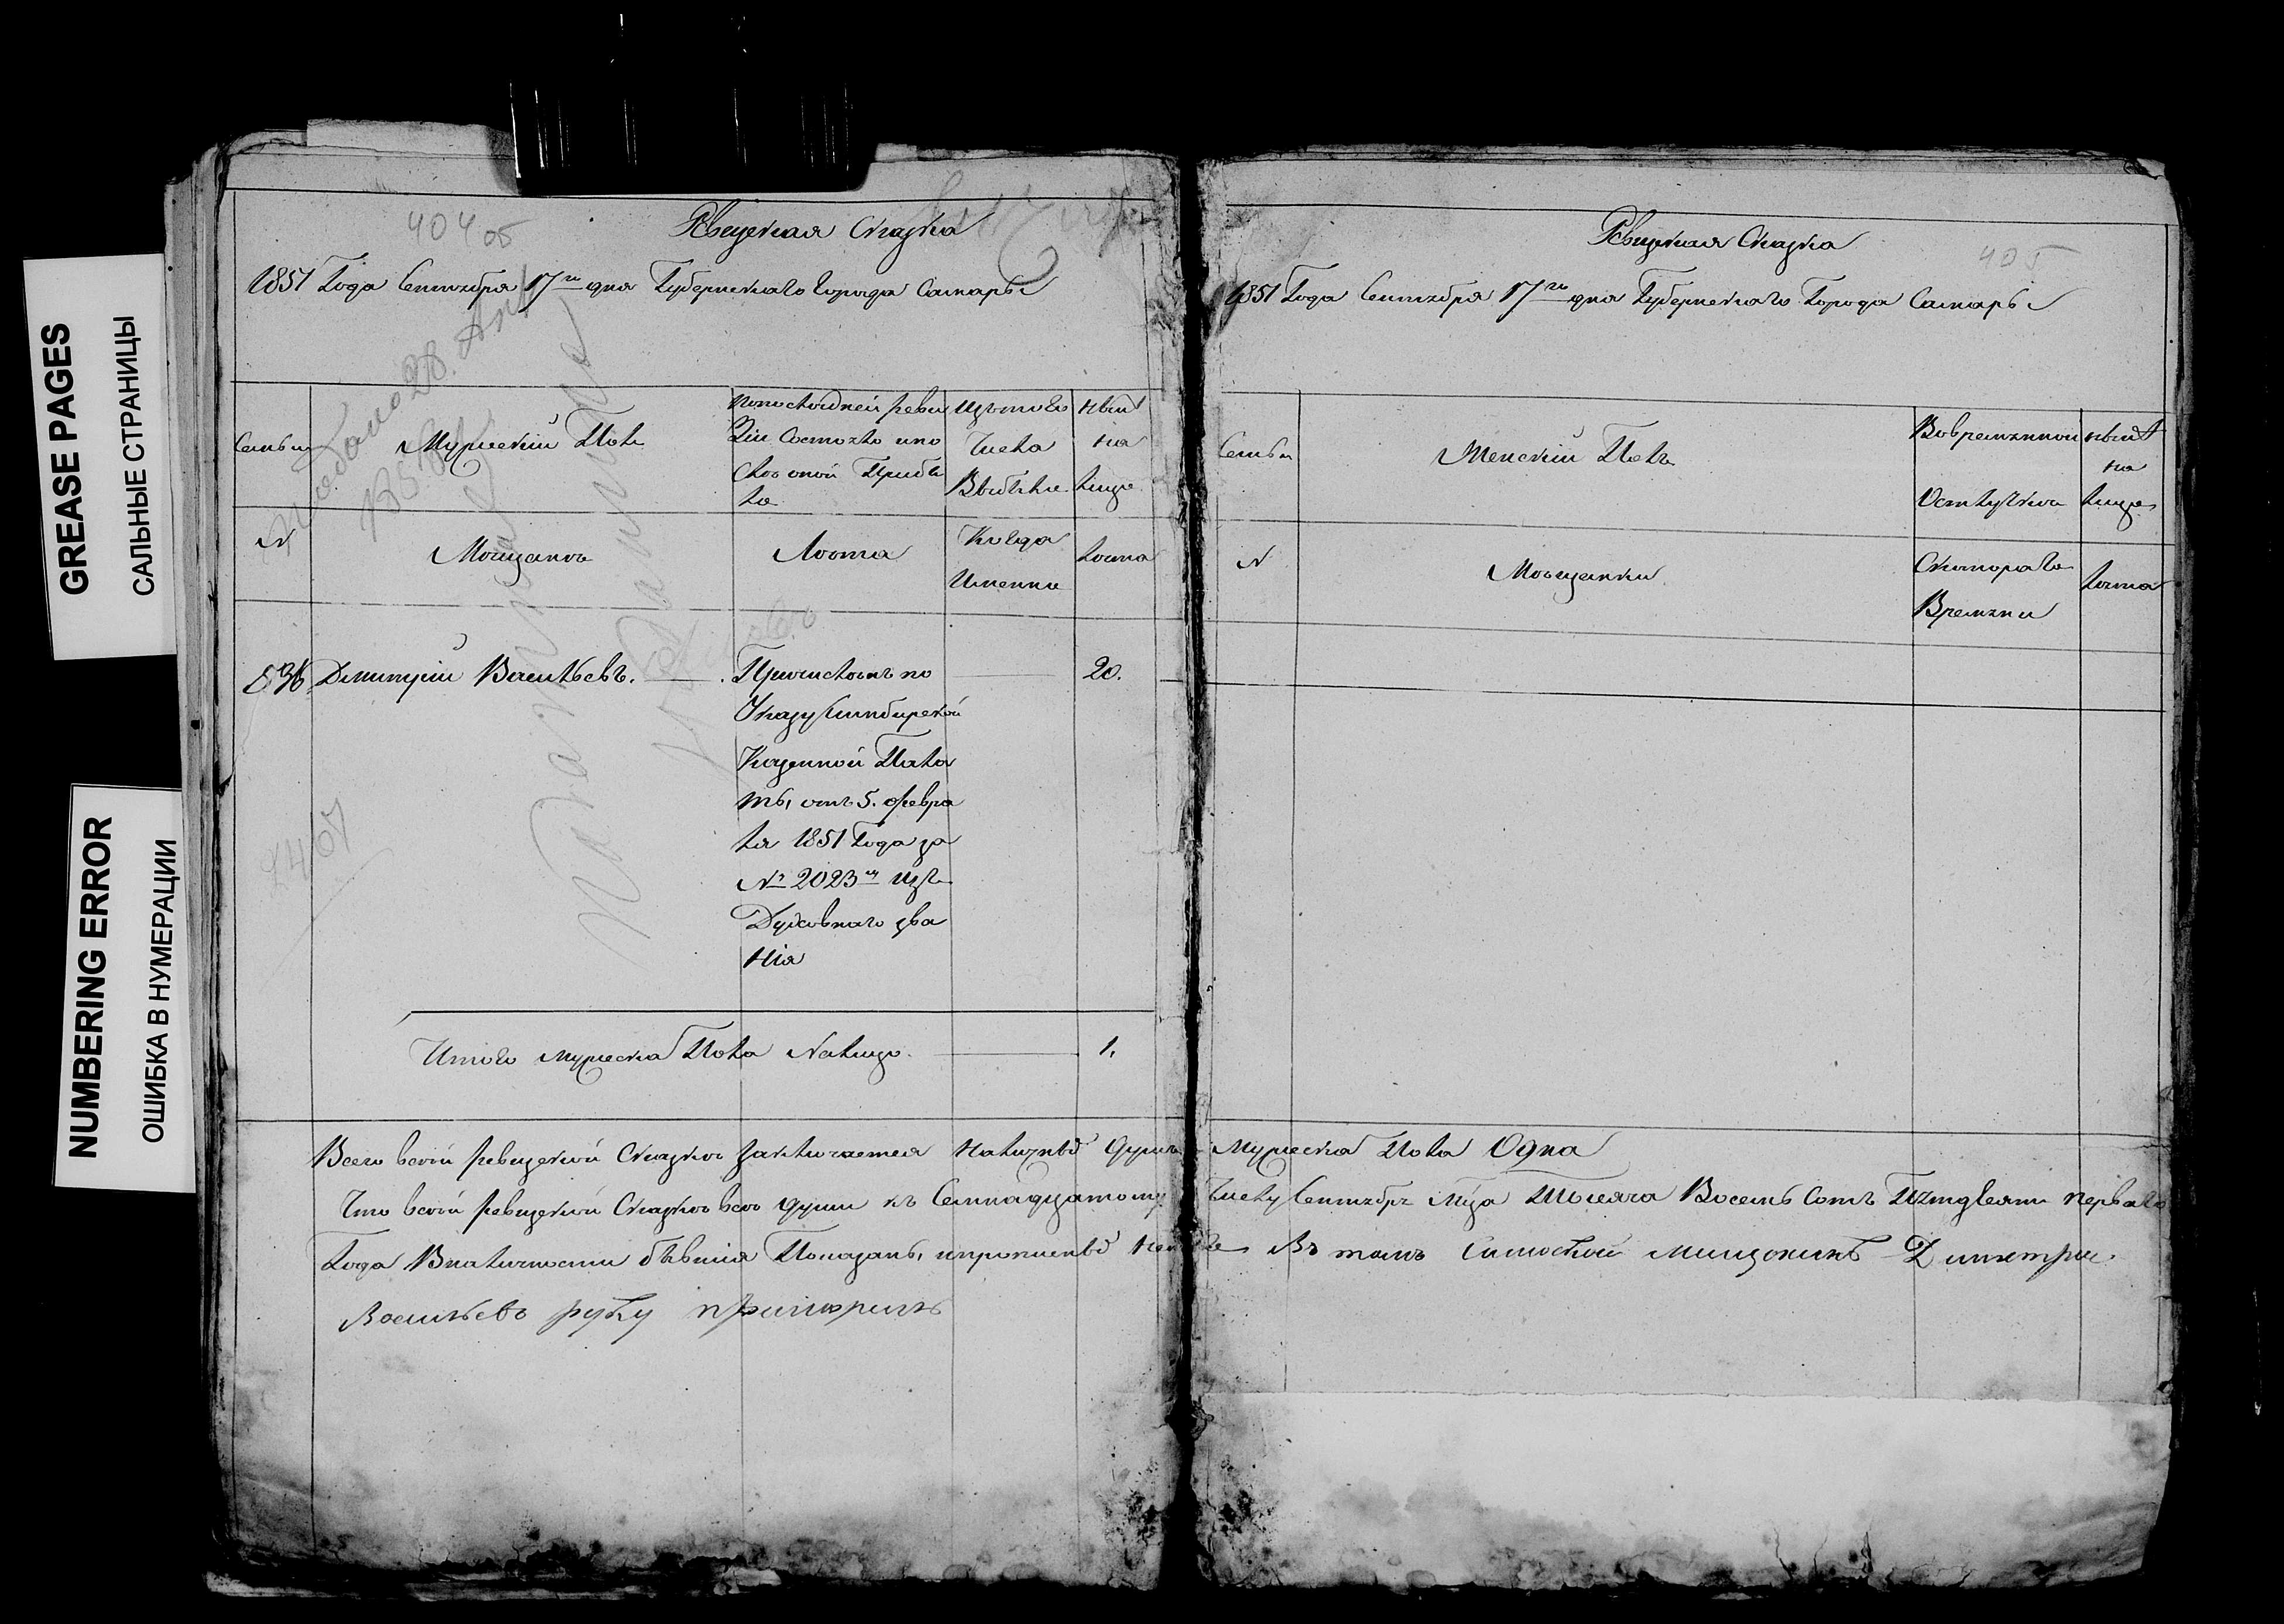 GREASE PAGES
САЛЬНЫЕ СТРАНИЦЫ
NUMBERING ERROR
ОШИБКА В НУМЕРАЦИИ
404 об
Ревизская Сказка
1851 Года Сентября 17го дня Губернскаго города Самары
Семьи
Мужеский Полъ
По последней реви
зіи состояло и по
сле оной Прибы
ло
Изътого
Числа
Выбыло
Ныне
на
лицо
№
Мещане
Лета
Когда
Именно
Лета
836 Дмитрій Васильевъ.
Причисленъ по
Указу Симбирской
Казенной Пала
ты, отъ 5. февра
ля 1851 Года за
№ 2023м изъ
Духовнаго зва
нія
20.
2467
Итого мужеска Пола Налицо. 1.
405
Ревизская Сказка
1851 Года Сентября 17го дня Губернскаго Города Самары
Семьи
Женский Полъ
Вовременной
Отлучке
Ныне
на
лицо
№
Мещанки
Скотораго
Времяни
Лета
Всего всей ревизской Сказке заключается Наличныхъ душъ Мужеска Пола Одна
Что всей ревизской Сказке все души къ Семнадцатому Числу Сентября М-ца Тысяча Восемь Сотъ Пятдесятъ перваго
Года Вналичности бывшія Показаны, ипрописныхъ Нетъ Въ томъ мищонинъ Димитри
Васильевъ руку приложилъ